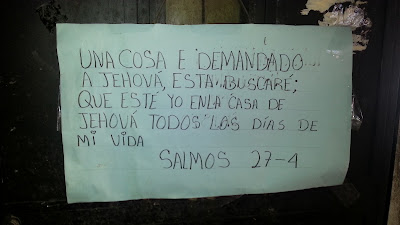 UNA COSA E DEMANDADO....
A JEHOVÁ, ESTA BUSCARÉ;
QUE ESTÉ YO ENLA CASA DE
JEHOVÁ TODOS LOS DÍAS DE
MI VIDA
SALMOS 27-4